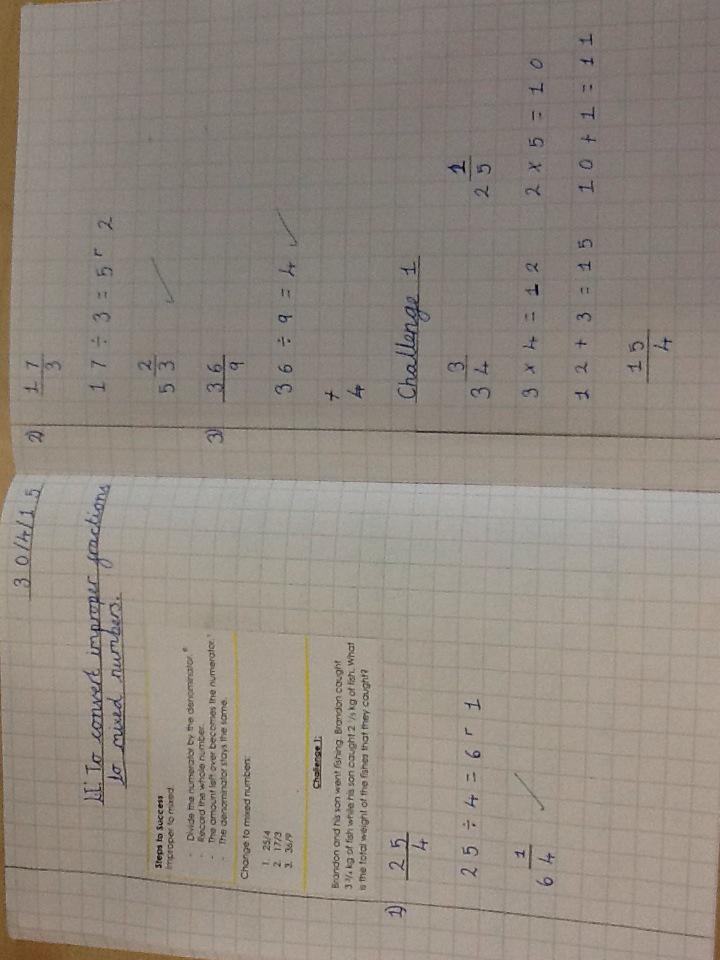 30/4/15
LI To convert improper fractions
to mixed numbers.
Steps to Success
Improper to mixed:
- Divide the numerator by the denominator.
- Record the whole number.
- The amount left over becomes the numerator.
- The denominator stays the same.
Change to mixed numbers:
1. 25/4
2. 17/3
3. 36/9
Challenge 1:
Brandon and his son went fishing. Brandon caught
3 3/4 kg of fish while his son caught 2 1/5 kg of fish. What
is the total weight of the fishes that they caught?
1) 25/4
25 ÷ 4 = 6 r 1
6 1/4
2) 17/3
17 ÷ 3 = 5 r 2
5 2/3
3) 36/9
36 ÷ 9 = 4
4
Challenge 1
3 3/4 2 1/5
3 x 4 = 12 2 x 5 = 10
12 + 3 = 15 10 + 1 = 11
15/4